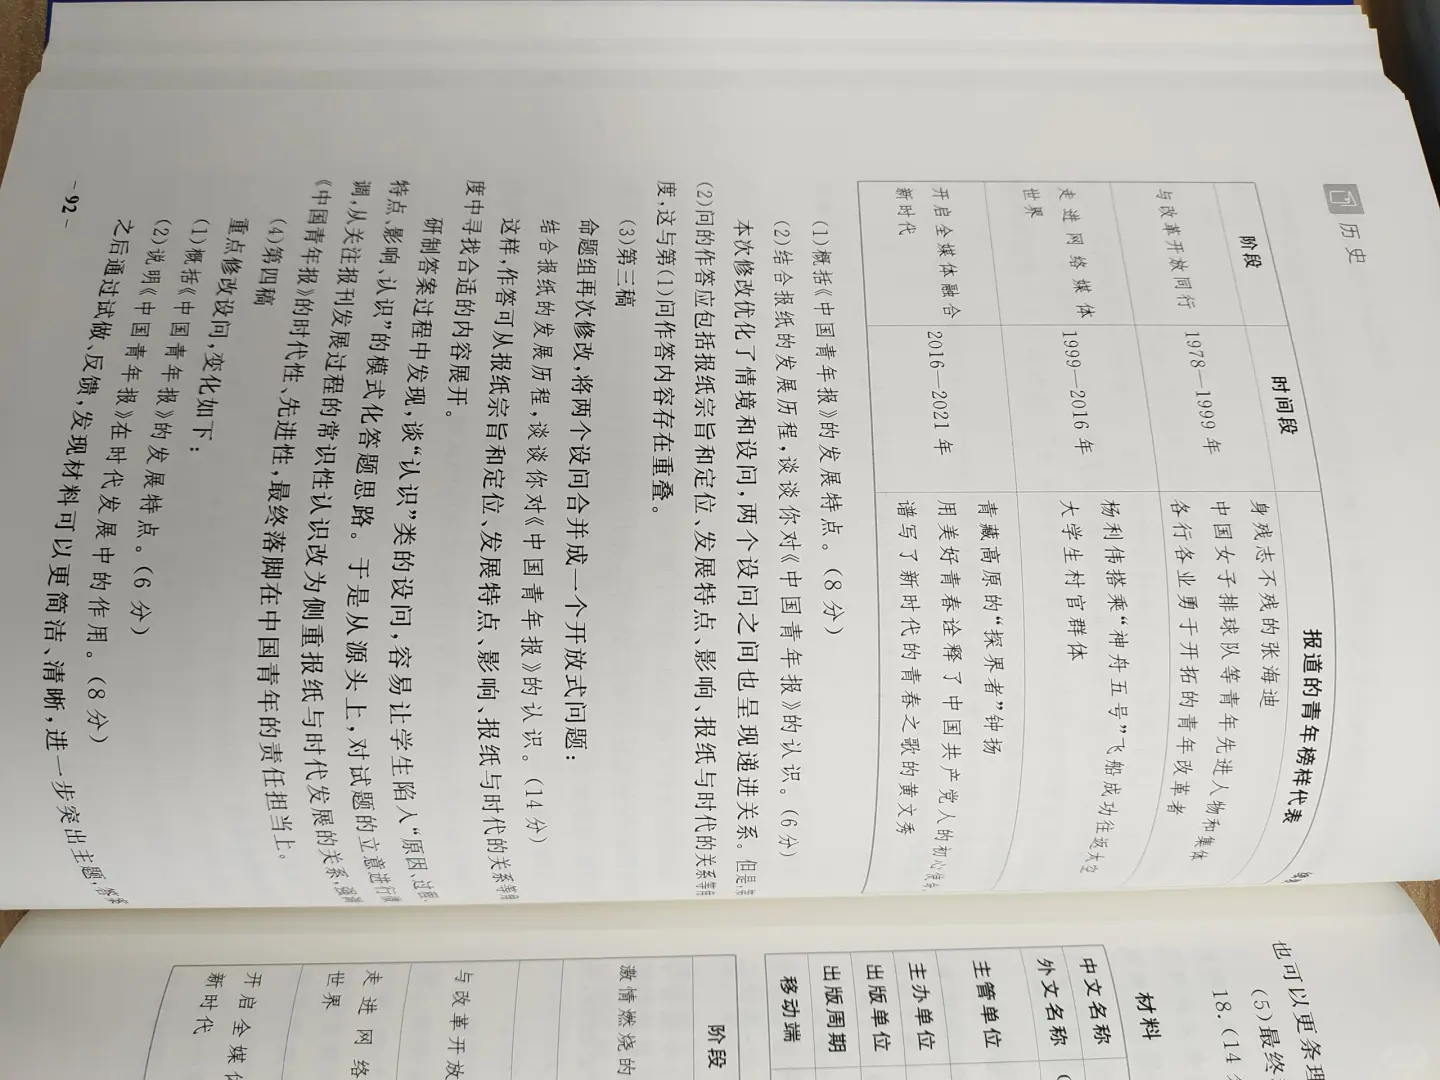 历史
续表
阶段 时间段 报道的青年榜样代表
与改革开放同行 1978—1999 年 身残志不残的张海迪
中国女子排球队等青年先进人物和集体
各行各业勇于开拓的青年改革者
走进网络媒体世界 1999—2016 年 杨利伟搭乘“神舟五号”飞船成功往返太空
大学生村官群体
开启全媒体融合新时代 2016—2021 年 青藏高原的“探界者”钟扬
用美好青春诠释了中国共产党人的初心使命、
谱写了新时代的青春之歌的黄文秀
(1)概括《中国青年报》的发展特点。(8 分)
(2)结合报纸的发展历程,谈谈你对《中国青年报》的认识。(6 分)
本次修改优化了情境和设问,两个设问之间也呈现递进关系。但是,第
(2)问的作答应包括报纸宗旨和定位、发展特点、影响、报纸与时代的关系等角
度,这与第(1)问作答内容存在重叠。
(3)第三稿
命题组再次修改,将两个设问合并成一个开放式问题:
结合报纸的发展历程,谈谈你对《中国青年报》的认识。(14 分)
这样,作答可从报纸宗旨和定位、发展特点、影响、报纸与时代的关系等角
度中寻找合适的内容展开。
研制答案过程中发现,谈“认识”类的设问,容易让学生陷入“原因、过程、
特点、影响、认识”的模式化答题思路。于是从源头上,对试题的立意进行微
调,从关注报刊发展过程的常识性认识改为侧重报纸与时代发展的关系,强调
《中国青年报》的时代性、先进性,最终落脚在中国青年的责任担当上。
(4)第四稿
重点修改设问,变化如下:
(1)概括《中国青年报》的发展特点。(6 分)
(2)说明《中国青年报》在时代发展中的作用。(8 分)
之后通过试做、反馈,发现材料可以更简洁、清晰,进一步突出主题,答案
- 92 -
也可以更条理
(5)最终
18.(14 分
材料
中文名称
外文名称
主管单位
主办单位
出版单位
出版周期
移动端
阶段
激情燃烧的
与改革开放
走进网络
世界
开启全媒体
新时代